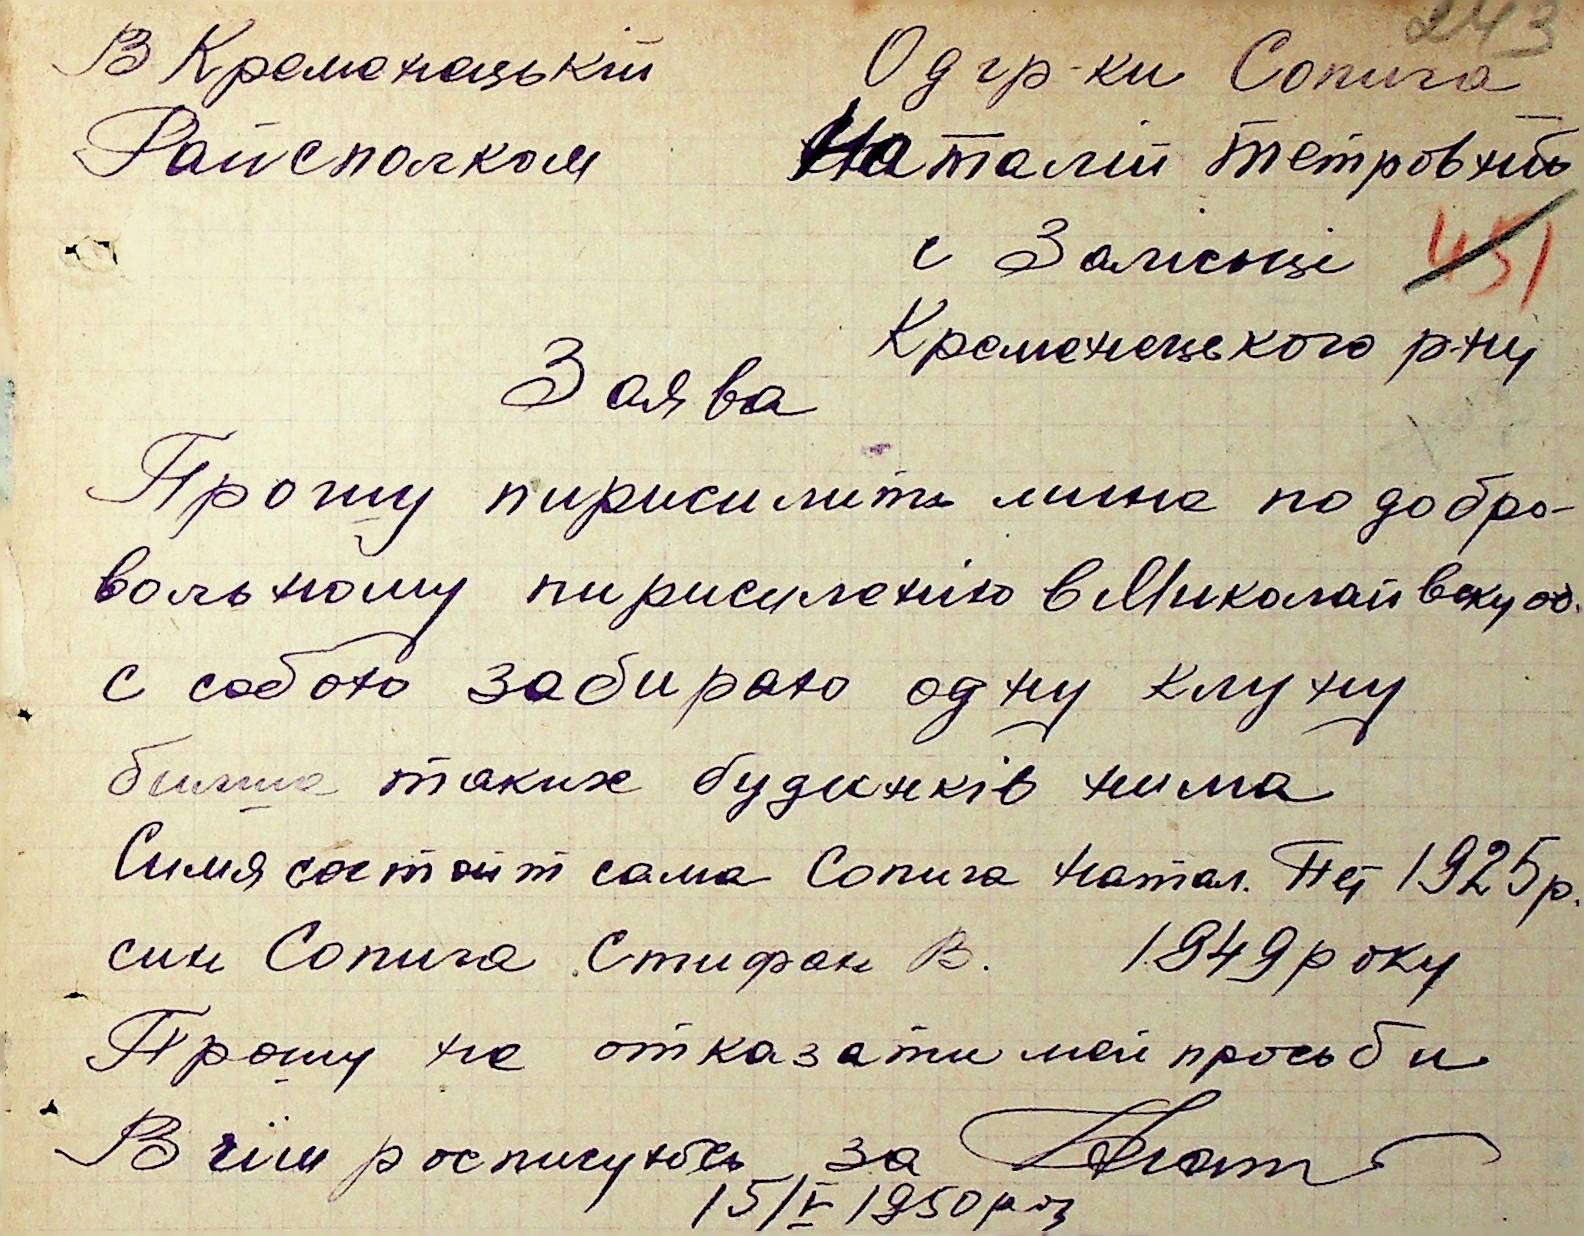 243
В Кременецькій Од гр-ки Сопига
Райсполком Наталій Петровни
с Залісьці 451
Кременецького р-ну
Заява
Прошу пирисилить мине по добро-
вольному пирисиленію в Миколаївску об.
с собою забираю одну клуню
билше таких будинків нима
Симя состоит сама Сопига Натал. Пет 1925 р.
син Сопига Стифан В. 1949 року
Прошу не отказати моей просьби
В чім росписуюсь за
15/V 1950 р